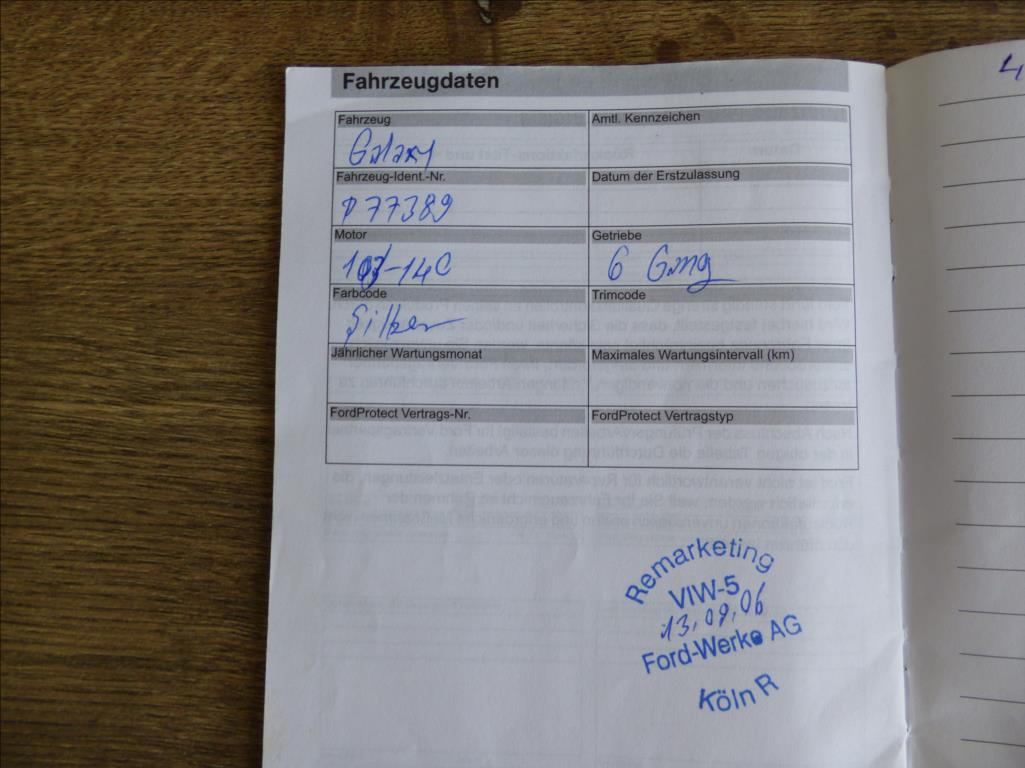 Fahrzeugdaten
Fahrzeug
Amtl. Kennzeichen
Galaxy
Fahrzeug-Ident.-Nr.
Datum der Erstzulassung
77389
Motor
Getriebe
6 Gang
Farbcode
Trimcode
Silber
Jährlicher Wartungsmonat
Maximales Wartungsintervall (km)
FordProtect Vertrags-Nr.
FordProtect Vertragstyp
Remarketing
VIW-5
13.09.06
Ford-Werke AG
Köln R